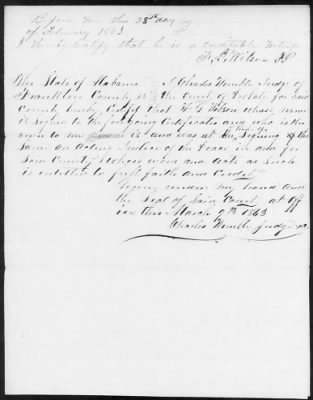 Before me this 28th day
of February 1863
I hereby certify that he is a creditable witness
H. G. Wilson J.P.
The State of Alabama I Charles Womble Judge of
Franklin County ss the Court of Probate for Said
County hereby Certify that H G Wilson whose name
is Signed to the foregoing Certificates and who is this
to me is and was at the time of Signing of the
Same an Acting Justice of the Peace in and for
Said County & whose word and Acts as Such
is entitled to full faith and Credit
Given under my hand and
the Seal of Said Court at Off
ice this March 9th 1863
Charles Womble Judge